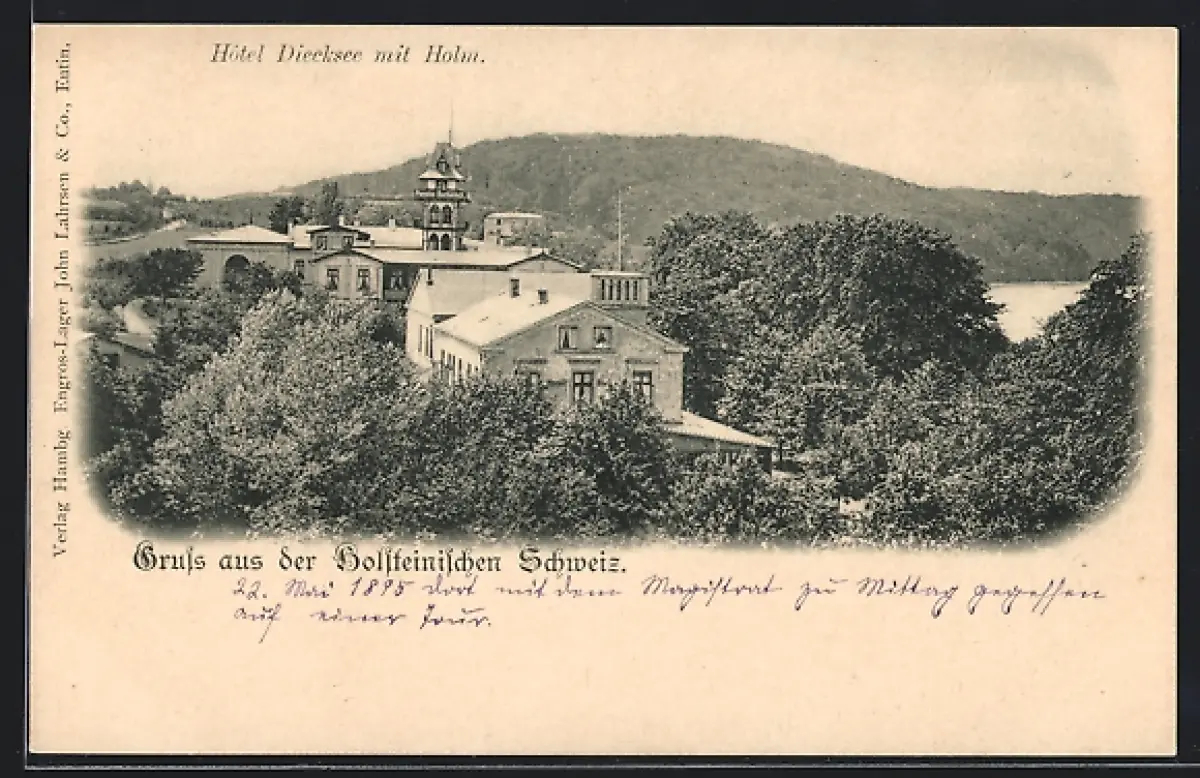 Hôtel Diecksee mit Holm.
Verlag Hambg Engros-Lager John Lahrsen & Co., Eutin.
Gruſs aus der Holſteiniſchen Schweiz.
22. Mai 1895 dort mit dem Magistrat zu Mittag gegessen
auf einer Tour.